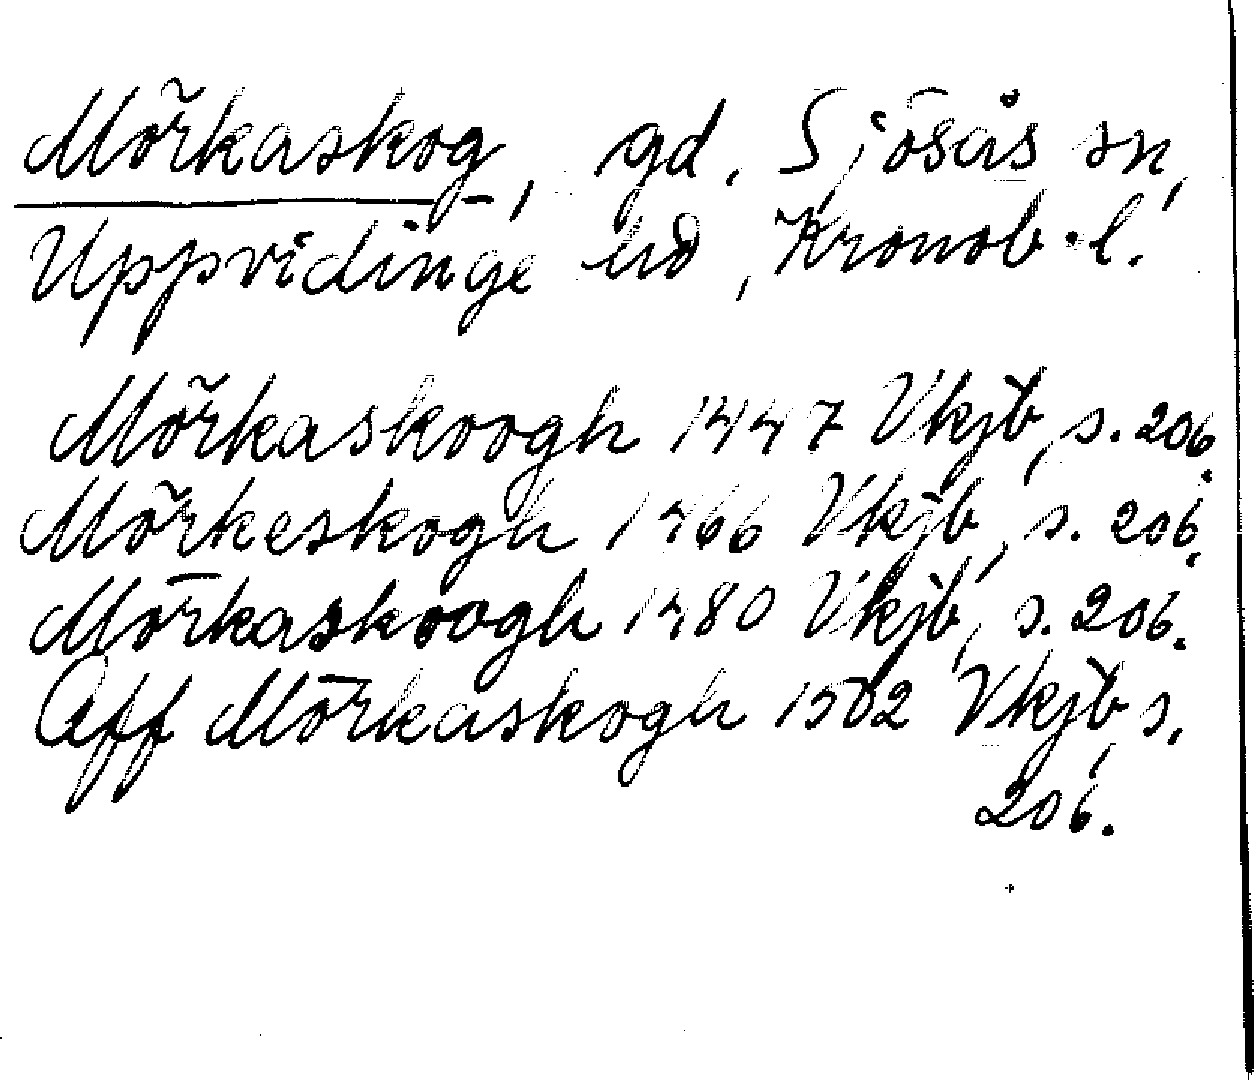 Mörkaskog, gd. Sjösås sn,
Uppvidinge hd, Kronob. l.
Mörkaskoogh 1447 Vkjb, s. 206.
Mörkeskogh 1466 Vkjb, s. 206.
Mörkaskoogh 1480 Vkjb, s. 206.
Aff Mörkaskogh 1502 Vkjb, s.
206.